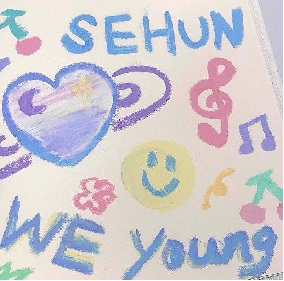 SEHUN
WE Young